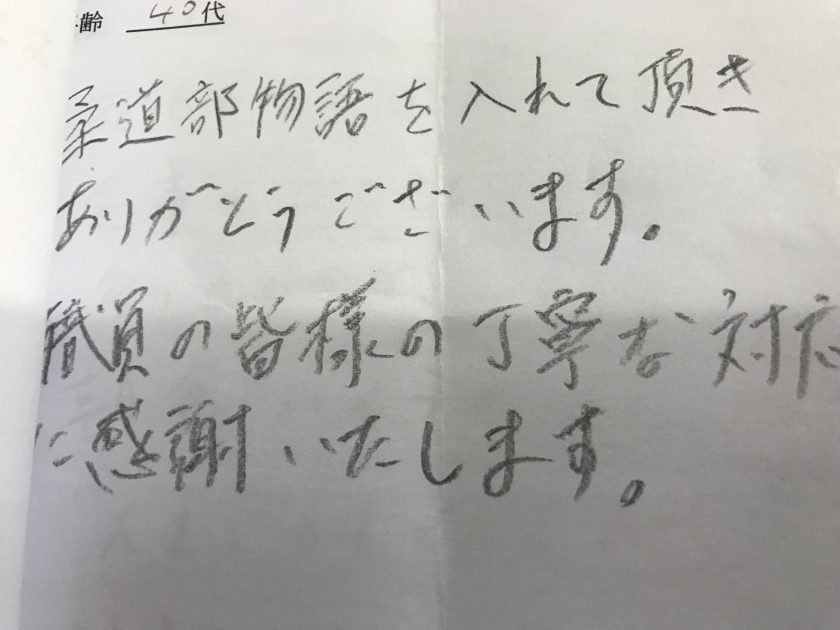 年齢 40代
柔道部物語を入れて頂き
ありがとうございます。
職員の皆様の丁寧な対応
に感謝いたします。